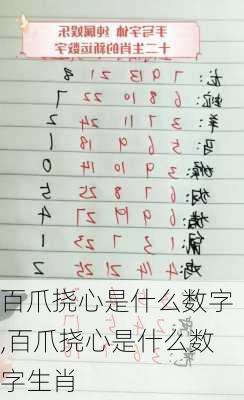 手写字体 纯属娱乐
十二生肖的新运数字
龙: 7 9 13 21 8
蛇: 6 8 10 22 7
羊: 3 7 11 24 2
马: 6 9 18 1
猴: 3 9 10 14 0
狗: 6 7 8 25 5
猪: 6 9 19 27 4
鼠: 1 3 7 23 1
鸡: 4 14 21 25 2
百爪挠心是什么数字
,百爪挠心是什么数
字生肖